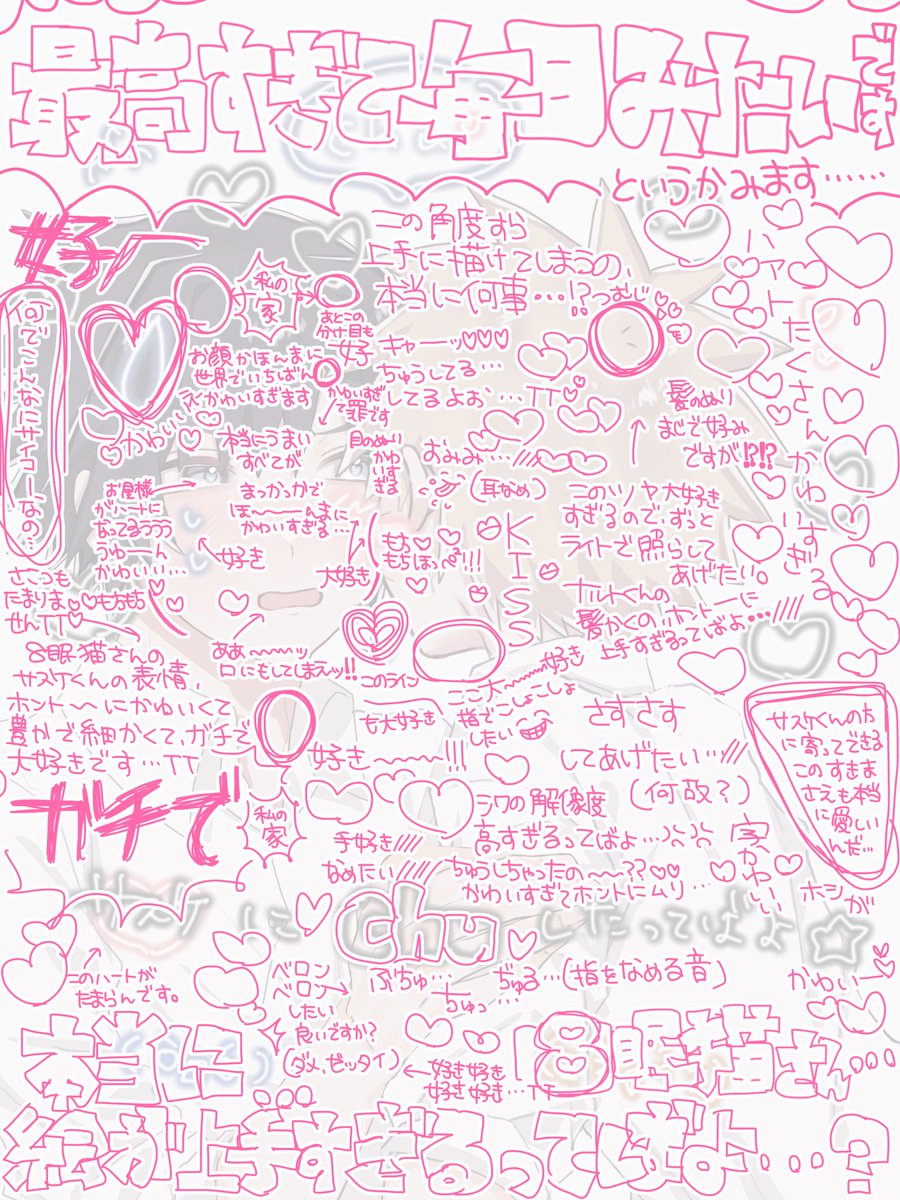 最高すぎて毎日みたいです
というかみます……
好
この角度すら
上手に描けてしまうの、
本当に何事…!?
つむじ
私の
家
あとこの
分け目も
好
ハアトたくさんかわいすぎる
何でこんなにサイコーなの…
お顔がほんまに
世界でいちばん
かわいすぎます
かわいすぎ
て罪です
キャーッ♡♡♡
ちゅうしてる…
してるよぉ…TT♡
髪のぬり
まじで好み
ですが!?!?
かわいい
本当にうまい
すべてが
目のぬり
かわいすぎる
おみみ…////
(耳なめ)
お星様
がハートに
なってるううう
うゆーん
かわいい…
好き
まっかっかで
ほ〜〜んまに
かわいすぎる…
大好き
もち♡♡
もちほっぺ!!!
KISS
このツヤ大好き
すぎるので、ずっと
ライトで照らして
あげたい。
ナルトくんの
髪かくのホントーに
上手すぎるってばよ…////
さこつも
たまりま
せんTT
もちもち
ああ〜〜〜ッ
口にもしてしまえッ!!
8眠猫さんの
サスケくんの表情、
ホント〜にかわいくて
豊かで細かくて、ガチで
大好きです…TT
このライン
も大好き
ここ大〜〜〜好き
指でこしょこしょ
したい
さすさす
してあげたい…///
(何故?)
サスケくんの方
に寄ってできる
このすきま
さえも本当
に愛しい
んだ…
好き〜〜!!!
ガチで
私の
家
手好き////
なめたい////
シワの解像度
高すぎるってばよ…
ちゅうしちゃったの〜〜??♡♡
かわいすぎてホントにムリ…
字かわいい
ホシが
かわいー
サスケにchuしたってばよ
このハートが
たまらんです。
ベロン
ベロン
したい
良いですか?
(ダメ、ゼッタイ)
ぶちゅ…
ちゅっ…
ぢゅる…(指をなめる音)
好き好き
好き好き…TT
本当に8眠猫さん…
絵が上手すぎるってばよ…?